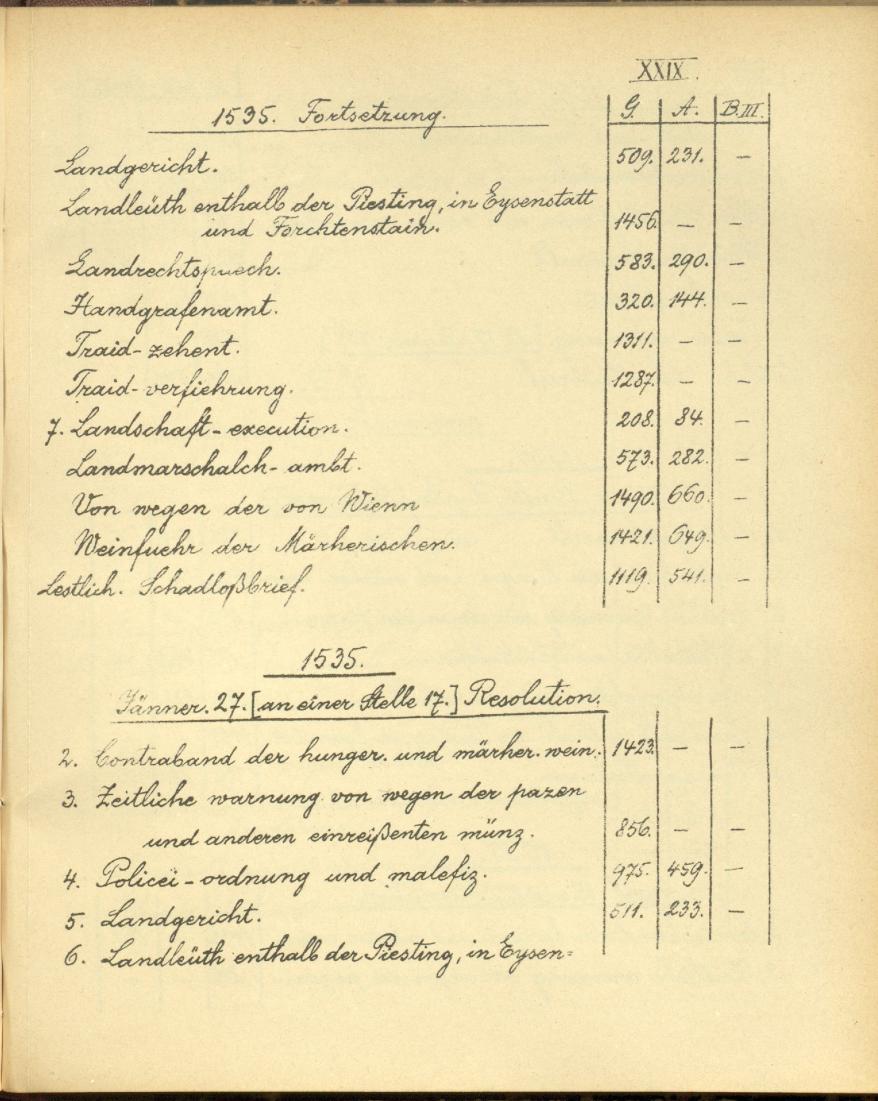 XXIX.
1535. Fortsetzung. G. A. B.III.
Landgericht. 509. 231. —
Landleüth enthalb der Piesting, in Eysenstatt
und Forchtenstain. 1456. — —
Landrechtspuech. 583. 290. —
Handgrafenamt. 320. 144. —
Traid-zehent. 1311. — —
Traid-verfiehrung. 1287. — —
7. Landschaft-execution. 208. 84. —
Landmarschalch-ambt. 573. 282. —
Von wegen der von Wienn 1490. 660. —
Weinfuehr der Märherischen. 1421. 649. —
Lestlich. Schadloßbrief. 1119. 541. —
1535.
Jänner. 27. [an einer Stelle 17.] Resolution.
2. Contraband der hunger. und märher. wein. 1423. — —
3. Zeitliche warnung von wegen der pazen
und anderen einreißenten münz. 856. — —
4. Policeï-ordnung und malefiz. 975. 459. —
5. Landgericht. 511. 233. —
6. Landleüth enthalb der Piesting, in Eysen=